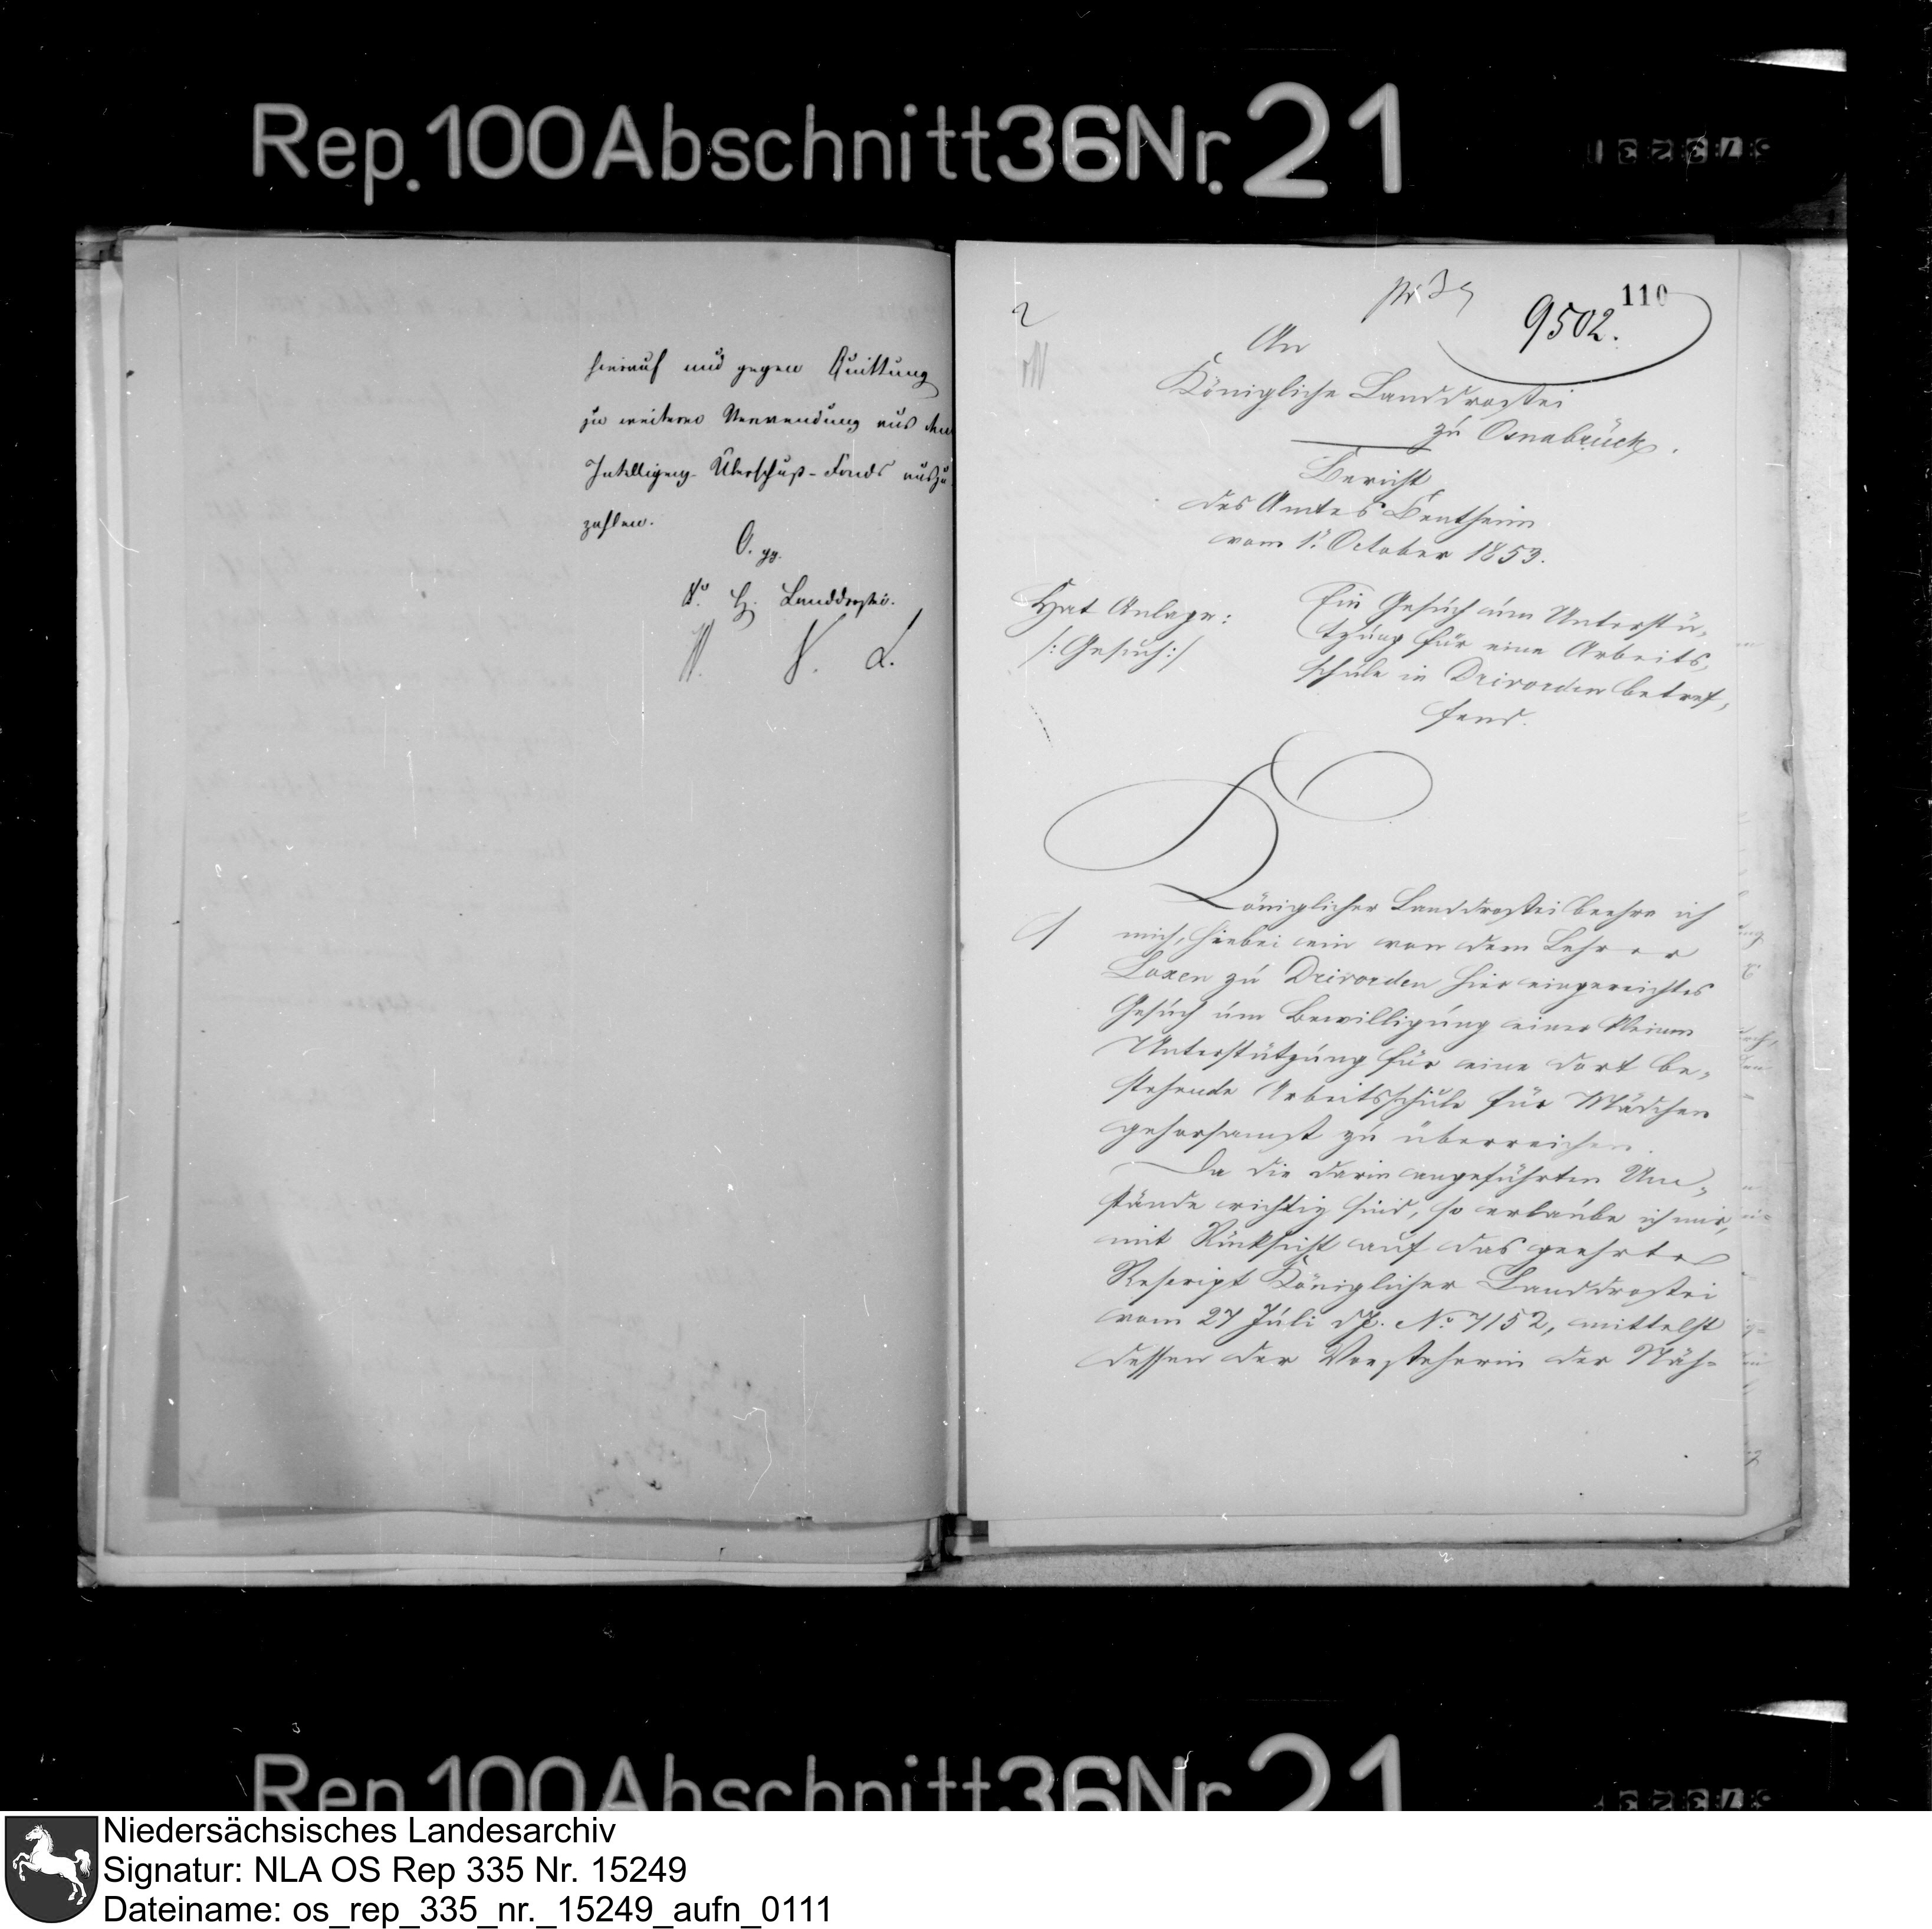 Rep. 100 Abschnitt 36 Nr. 21
hierauf und gegen Quittung
zu weiterer Verwendung aus dem
Intelligenz-Überschuß-Fonds auszu
zahlen.
K. H. Landdrostei.
110
9502.
An
Königliche Landdrostei
zu Osnabrück.
Bericht
des Amtes Bentheim
vom 1. October 1853.
Hat Anlage:
/: Gesuch :/
Ein Gesuch um Unterstü-
tzung für eine Arbeits-
schule in Drivorden betref-
fend.
Königlicher Landdrostei beehre ich
mich, hiebei ein von dem Lehrer
Loxen zu Drivorden hier eingereichtes
Gesuch um Bewilligung einer kleinen
Unterstützung für eine dort be-
stehende Arbeitsschule für Mädchen
gehorsamst zu überreichen.
Da die darin angeführten Um-
stände richtig sind, so erlaube ich mir,
mit Rücksicht auf das geehrte
Rescript Königlicher Landdrostei
vom 27 Juli d.J. No 7152, mittelst
dessen der Vorsteherin der Näh=
Rep. 100 Abschnitt 36 Nr. 21
Niedersächsisches Landesarchiv
Signatur: NLA OS Rep 335 Nr. 15249
Dateiname: os_rep_335_nr._15249_aufn_0111